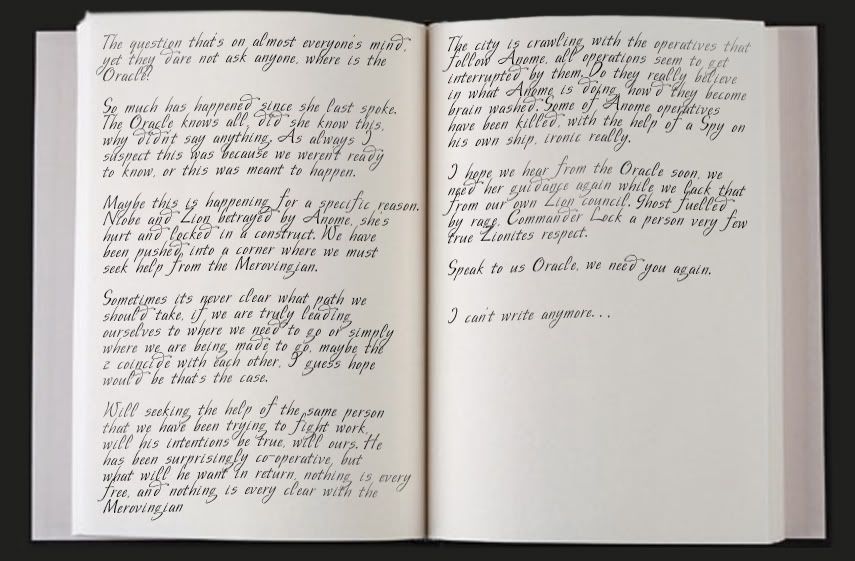 The question that's on almost everyone's mind,
yet they dare not ask anyone, where is the
Oracle?
So much has happened since she last spoke.
The Oracle knows all, did she know this,
why didn't say anything. As always I
suspect this was because we weren't ready
to know, or this was meant to happen.
Maybe this is happening for a specific reason.
Niobe and Zion betrayed by Anome, she's
hurt and locked in a construct. We have
been pushed into a corner where we must
seek help from the Merovingian.
Sometimes its never clear what path we
should take, if we are truly leading
ourselves to where we need to go or simply
where we are being made to go, maybe the
2 coincide with each other, I guess hope
would be that's the case.
Will seeking the help of the same person
that we have been trying to fight work,
will his intentions be true, will ours. He
has been surprisingly co-operative, but
what will he want in return, nothing is every
free, and nothing is every clear with the
Merovingian
The city is crawling with the operatives that
follow Anome, all operations seem to get
interrupted by them. Do they really believe
in what Anome is doing, how'd they become
brain washed. Some of Anome operatives
have been killed, with the help of a Spy on
his own ship, ironic really.
I hope we hear from the Oracle soon, we
need her guidance again while we lack that
from our own Zion council. Ghost fuelled
by rage, Commander Lock a person very few
true Zionites respect.
Speak to us Oracle, we need you again.
I can't write anymore...